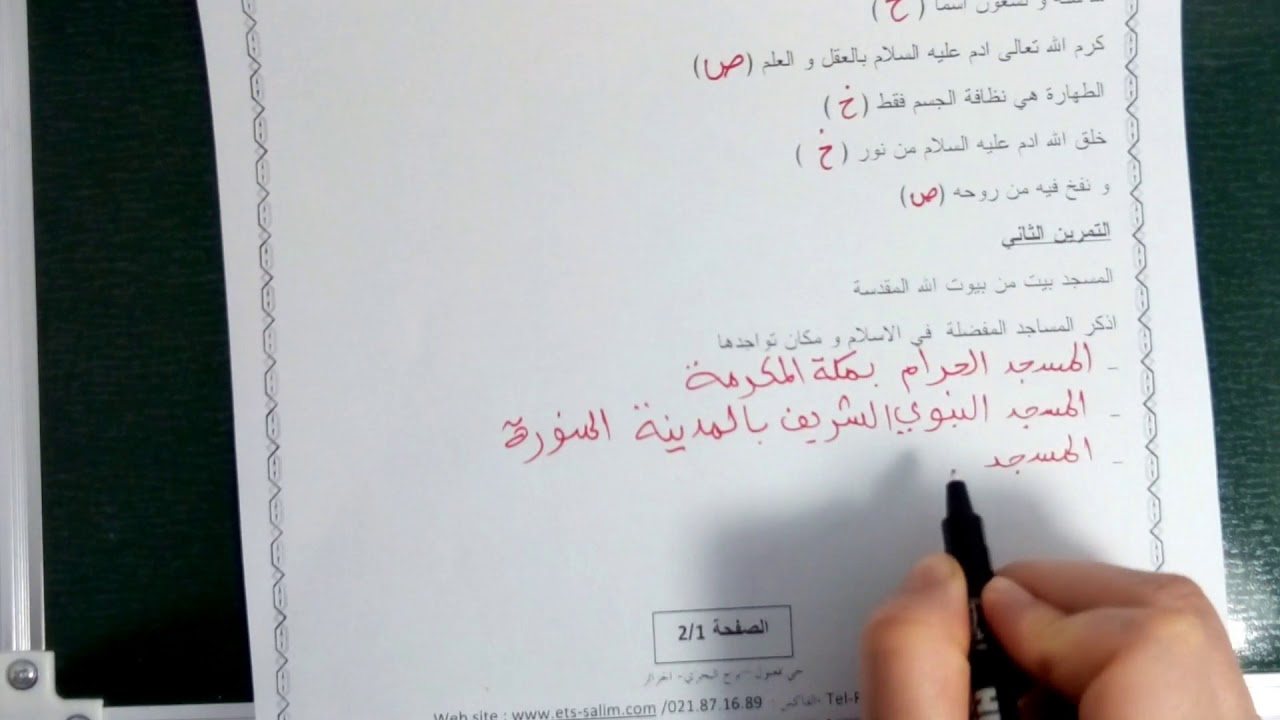 و تسعون اسما ( خ )
كرم الله تعالى ادم عليه السلام بالعقل و العلم (ص)
الطهارة هي نظافة الجسم فقط ( خ )
خلق الله ادم عليه السلام من نور ( خ )
و نفخ فيه من روحه (ص)
التمرين الثاني
المسجد بيت من بيوت الله المقدسة
اذكر المساجد المفضلة في الاسلام و مكان تواجدها
- المسجد الحرام بمكة المكرمة
- المسجد النبوي الشريف بالمدينة المنورة
- المسجد
الصفحة 2/1
حي فعنول - برج البحري - الجزائر
Web site : www.ets-salim.com /021.87.16.89 : الفاكس- Tel-